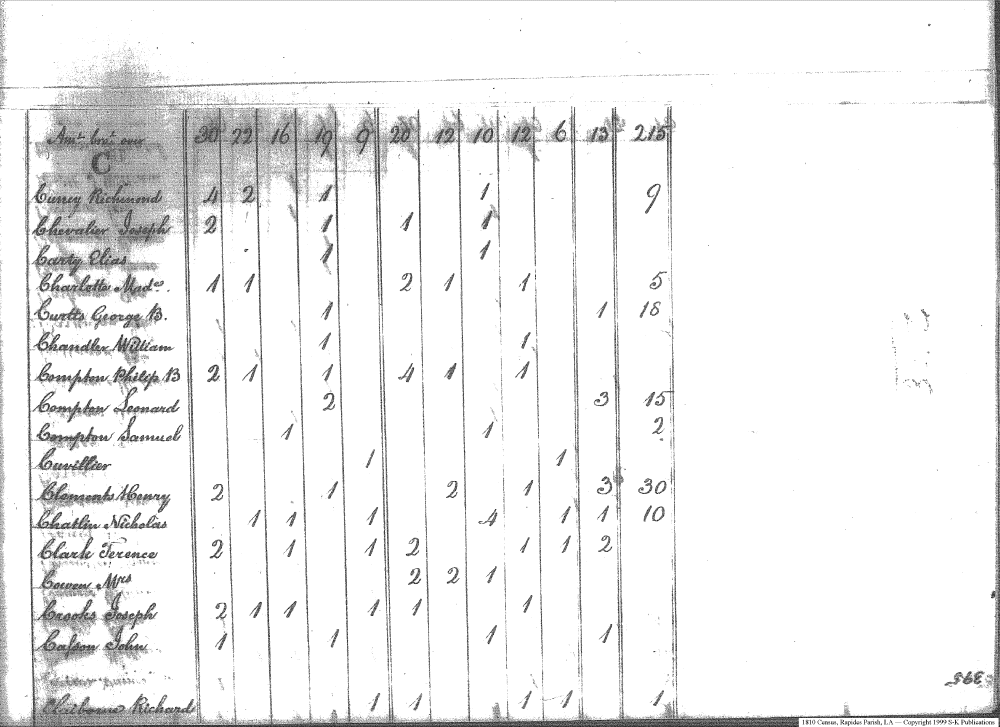 Amt. brot. over 30 22 16 19 9 20 12 10 12 6 13 215
C
Cuney Richmond 4 2 1 1 9
Chevalier Joseph 2 1 1 1
Carty Elias 1 1
Charlotte Made. 1 1 2 1 1 5
Curtis George B. 1 1 18
Chandler William 1 1
Compton Philip B 2 1 1 4 1 1
Compton Leonard 2 3 15
Compton Samuel 1 1 2
Cuvillier 1 1
Clements Henry 2 1 2 1 3 30
Chatlin Nicholas 1 1 1 4 1 1 10
Clark Terence 2 1 1 2 1 1 2
Cowen Mrs 2 2 1
Crooks Joseph 2 1 1 1 1 1
Casson John 1 1 1 1
395
Claiborne Richard 1 1 1 1 1
1810 Census, Rapides Parish, LA — Copyright 1999 S-K Publications